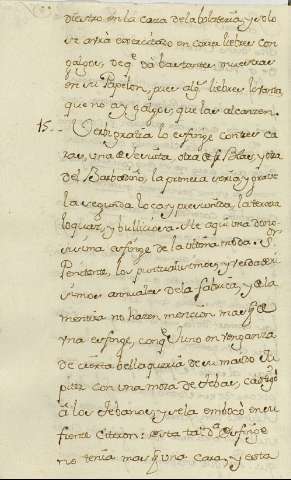 diestro en la caza de la bolateria, y solo
se avrà exercitado en correr liebres con
galgos, de q.e dà bastantes muestras
en su Papelon, pues alg.s liebres levanta,
que no ay galgos, que las alcanzen.
15.. Vmd. pratia la esfinge con tres ca
ras, una de Jesuita, otra de Fr. Blas, y otra
del Barbadiño, la primera seria, y grave
la segunda loca, y presumida, la tercera
loquaz, y bulliciosa. He aqui una dono
sissima esfinge de la ultima moda. S.or
Penitente, los puntualissimos, y verdaderi
simos annales de la fabula, y de la
mentira no hazen mencion mas q.e de
una esfinge, con q.e Juno en venganza
de cierta bellaqueria de su marido Ju
piter con una moza de Tebas, castigò
à los Tebanos, y se la embocò en su
fuente Citeron: esta tal D.a Esfinge
no tenia mas q.e una cara, y esta